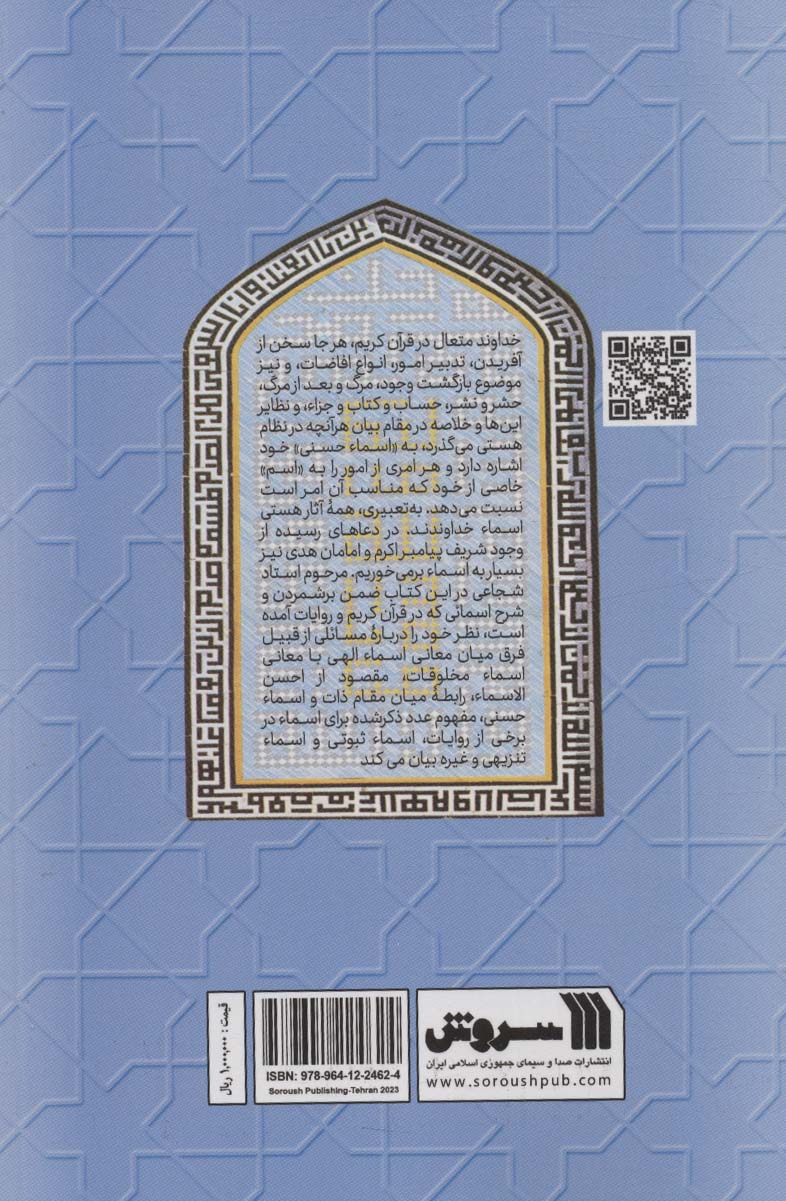 خداوند متعال در قرآن کریم، هر جا سخن از
آفریدن، تدبیر امور، انواع افاضات، و نیز
موضوع بازگشت وجود، مرگ و بعد از مرگ،
حشر و نشر، حساب و کتاب و جزاء، و نظایر
این‌ها و خلاصه در مقام بیان هرآنچه در نظام
هستی می‌گذرد، به «اسماء حسنی» خود
اشاره دارد و هر امری از امور را به «اسم»
خاصی از خود که مناسب آن امر است
نسبت می‌دهد. به‌تعبیری، همهٔ آثار هستی
اسماء خداوندند. در دعاهای رسیده از
وجود شریف پیامبر اکرم و امامان هدی نیز
بسیار به اسماء برمی‌خوریم. مرحوم استاد
شجاعی در این کتاب ضمن برشمردن و
شرح اسمائی که در قرآن کریم و روایات آمده
است، نظر خود را دربارهٔ مسائلی از قبیل
فرق میان معانی اسماء الهی با معانی
اسماء مخلوقات، مقصود از احسن
الاسماء، رابطهٔ میان مقام ذات و اسماء
حسنی، مفهوم عدد ذکرشده برای اسماء در
برخی از روایات، اسماء ثبوتی و اسماء
تنزیهی و غیره بیان می کند
سروش
انتشارات صدا و سیمای جمهوری اسلامی ایران
www.soroushpub.com
ISBN: 978-964-12-2462-4
Soroush Publishing-Tehran 2023
قیمت: ۱,۰۰۰,۰۰۰ ریال